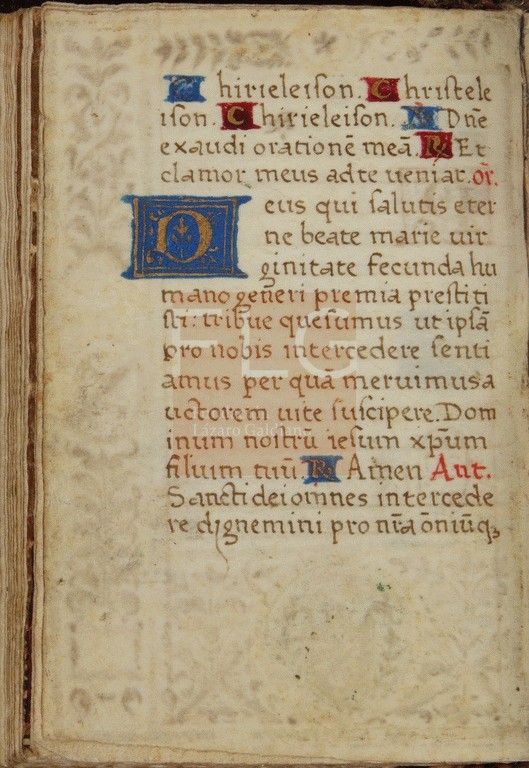 Chirieleison. Christele
ison. Chirieleison. V Dñe
exaudi orationē meā. R Et
clamor meus ad te veniat. or̄.
Deus qui salutis eter
ne beate marie vir
ginitate fecunda hu
mano generi premia prestiti
sti: tribue quesumus ut ipsā
pro nobis intercedere senti
amus per quā meruimus a
uctorem vite suscipere. Dom
inum nostrū iesum xp̄um
filium tuū R Amen Ant.
Sancti dei omnes intercede
re dignemini pro nr̄a ōniūq3
FLG
Lázaro Galdiano